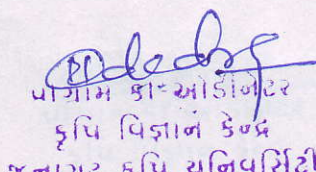 પ્રોગ્રામ કો-ઓર્ડીનેટર
કૃષિ વિજ્ઞાન કેન્દ્ર
કૃષિ યુનિવર્સિટી